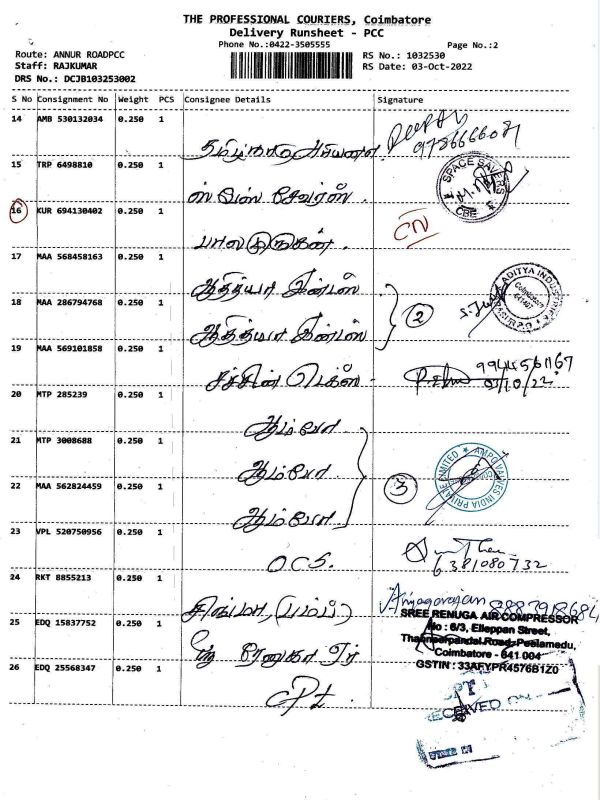 THE PROFESSIONAL COURIERS, Coimbatore
Delivery Runsheet - PCC
Phone No.:0422-3505555
Page No.:2
Route: ANNUR ROADPCC
Staff: RAJKUMAR
DRS No.: DCJB103253002
RS No.: 1032530
RS Date: 03-Oct-2022
S No Consignment No Weight PCS Consignee Details Signature
14 AMB 530132034 0.250 1
9786666081
15 TRP 6498810 0.250 1
ஸ்பேஸ் சேவர்ஸ்
SPACE SAVERS
CBE
16 KUR 694130402 0.250 1
பாலமுருகன்
17 MAA 568458163 0.250 1
ஆதித்யா இன்டஸ்
ADITYA INDUSTRIES
Coimbatore
641407
18 MAA 286794768 0.250 1
ஆதித்யா இன்டஸ்
2
19 MAA 569101858 0.250 1
சச்சின் டெக்ஸ்
03/10/22
20 MTP 285239 0.250 1
ஆம்போ
21 MTP 3008688 0.250 1
ஆம்போ
22 MAA 562824459 0.250 1
ஆம்போ
3
AMPO VALVES INDIA PRIVATE LIMITED
23 VPL 520750956 0.250 1
O.C.S.
6381080732
24 RKT 8855213 0.250 1
25 EDQ 15837752 0.250 1
ஸ்ரீ ரேணுகா ஏர்
SREE RENUGA AIR COMPRESSOR
No : 6/3, Elleppan Street,
Thanneerpandal Road, Peelamedu,
Coimbatore - 641 004
GSTIN : 33AFYPR4576B1Z0
26 EDQ 25568347 0.250 1
CPT
RECEIVED ON